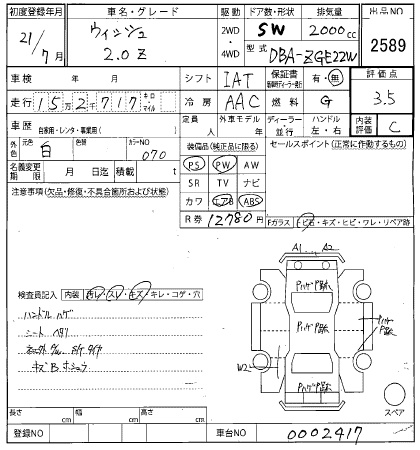 初度登録年月 車名・グレード 駆動 ドア数・形状 排気量 出品NO
21/7月 ウィッシュ 2WD SW 2000cc 2589
2.0Z 4WD 型式 DBA-ZGE22W
車検 年 月 シフト IAT 保証書 有・無 評価点
走行 152717 キロ・マイル 冷房 AAC 燃料 G 3.5
車歴 自家用・レンタ・事業用( ) 定員 人 外車モデル 年 ディーラー・並行 ハンドル 左・右 内装評価 C
外色 元色 白 色替 カラーNO 070 装備品(純正品に限る) セールスポイント(正常に作動するもの)
名義変更期限 月 日迄 積載 t PS PW AW
注意事項(欠品・修復・不具合箇所および状態) SR TV ナビ
カワ エアB ABS
R券 12780円 Fガラス トビ石・キズ・ヒビ・ワレ・リペア跡
A1 A2
検査員記入 内装 汚レ・スレ・キズ・キレ・コゲ・穴
ハンドル ハゲ
シート ヘタリ
キズBホシュウ
W2
スペア
長さ cm 幅 cm 高さ cm
登録NO 車台NO 0002417